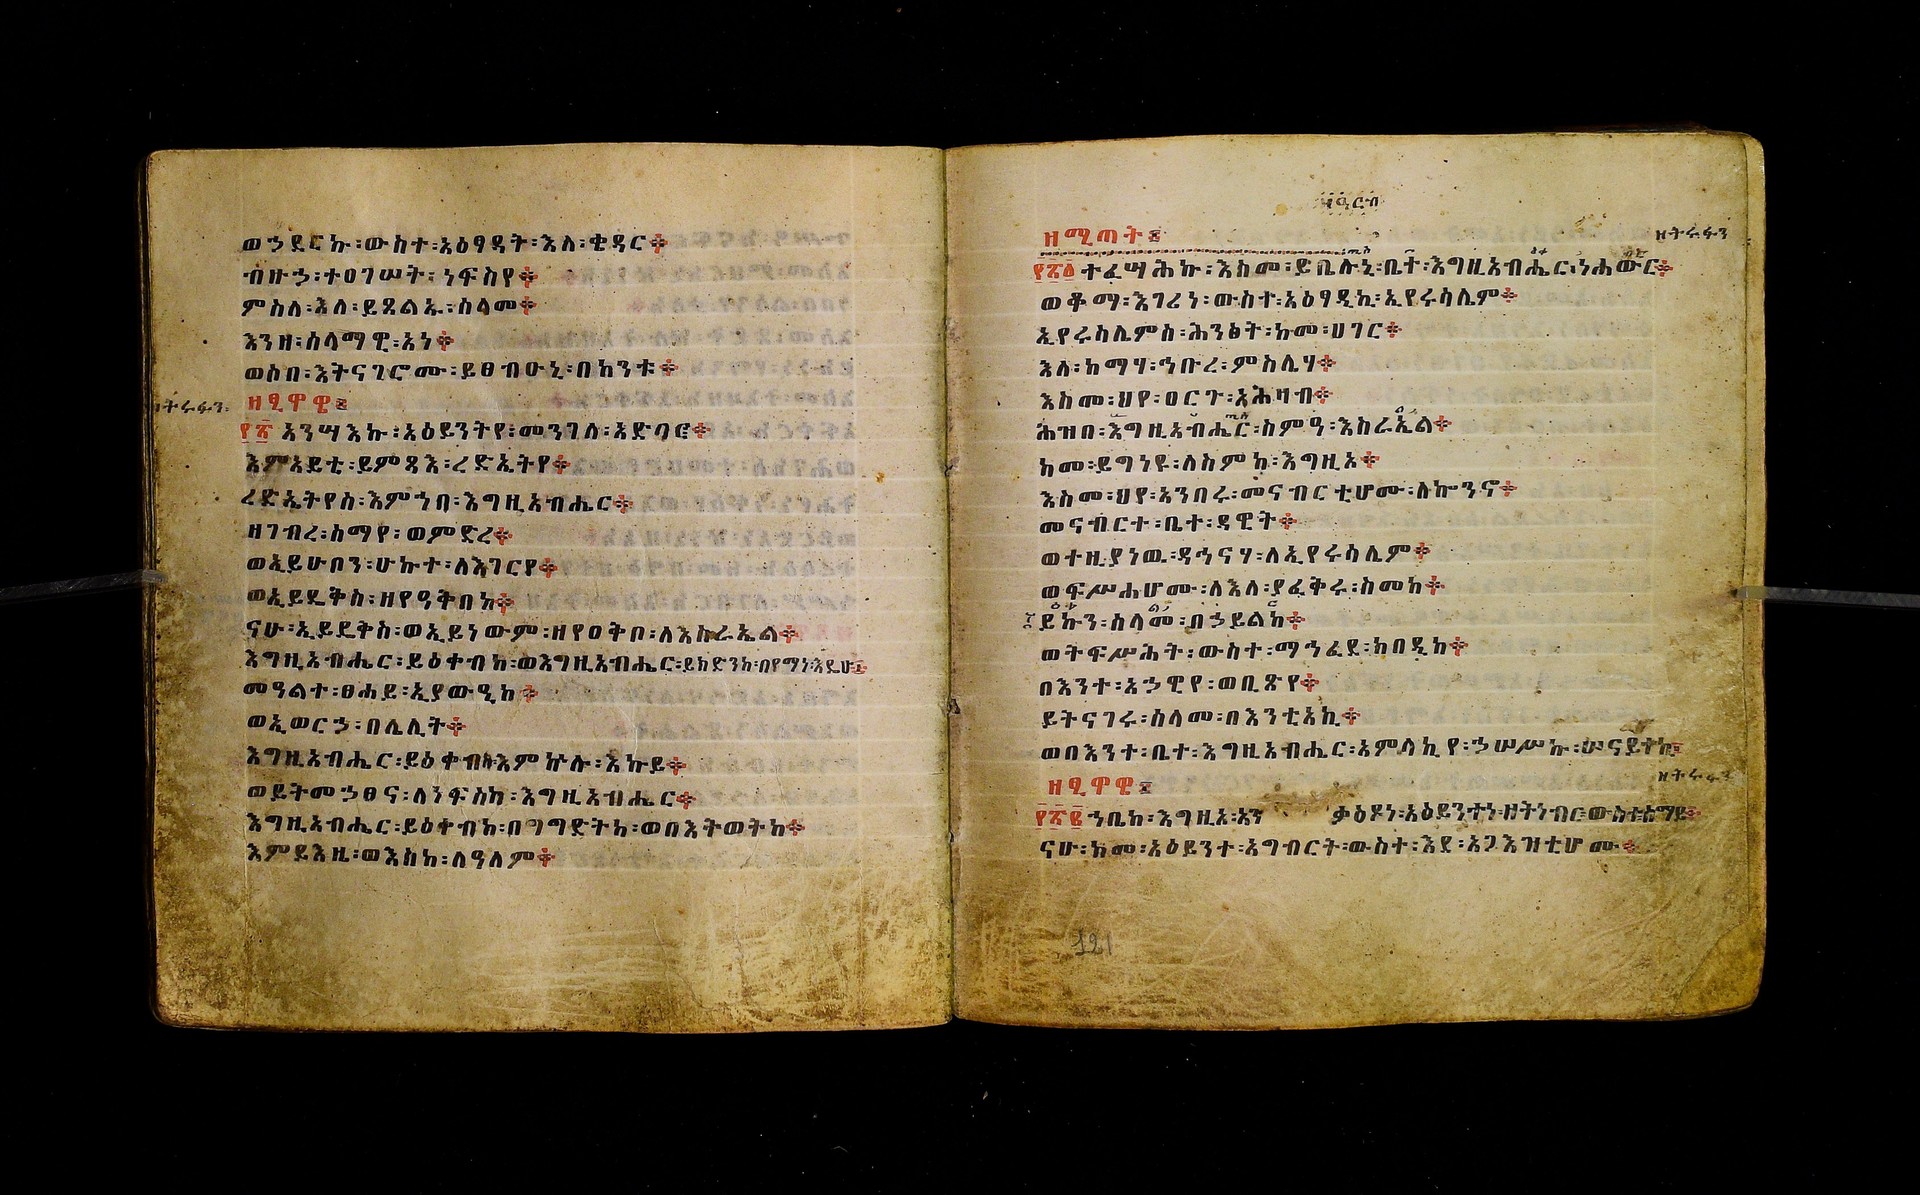 ወኃደርኩ፡ውስተ፡አዕፃዳት፡እለ፡ቄዳር፨
ብዙኃ፡ተዐገሠት፡ነፍስየ፨
ምስለ፡እለ፡ይጸልኡ፡ሰላመ፨
እንዘ፡ሰላማዊ፡አነ፨
ወሶበ፡እትናገሮሙ፡ይፀብዑኒ፡በከንቱ፨
ዘትሩፋን፡
ዘፂዋዌ፤
፻፳ አንሣእኩ፡አዕይንትየ፡መንገለ፡አድባር፨
እምአይቴ፡ይምጻእ፡ረድኤትየ፨
ረድኤትየሰ፡እምኀበ፡እግዚአብሔር፨
ዘገብረ፡ሰማየ፡ወምድረ፨
ወኢይሁበን፡ሁከተ፡ለእገርየ፨
ወኢይዴቅስ፡ዘየዓቅበከ፨
ናሁ፡ኢይዴቅስ፡ወኢይነውም፡ዘየዐቅቦ፡ለእስራኤል፨
እግዚአብሔር፡ይዕቀብከ፡ወእግዚአብሔር፡ይክድንከ፡በየማነ፡እዴሁ፨
መዓልተ፡ፀሐይ፡ኢያውዒከ፨
ወኢወርኃ፡በሌሊት፨
እግዚአብሔር፡ይዕቀብከ፡እምኵሉ፡እኩይ፨
ወይትመኃፀና፡ለነፍስከ፡እግዚአብሔር፨
እግዚአብሔር፡ይዕቀብከ፡በግግድትከ፡ወበእትወትከ፨
እምይእዜ፡ወእስከ፡ለዓለም፨
ዘዓርብ
ዘሚጠት፤
ዘትሩፋን
፻፳፩ ተፈሣሕኩ፡እስመ፡ይቤሉኒ፡ቤተ፡እግዚአብሔር፡ነሐውር፨
ወቆማ፡እገሪነ፡ውስተ፡አዕፃዲኪ፡ኢየሩሳሌም፨
ኢየሩሳሌምሰ፡ሕንፅት፡ከመ፡ሀገር፨
እለ፡ከማሃ፡ኅቡረ፡ምስሌሃ፨
እስመ፡ህየ፡ዐርጉ፡አሕዛብ፨
ሕዝበ፡እግዚአብሔር፡ስምዓ፡እስራኤል፨
ከመ፡ይግነዩ፡ለስምከ፡እግዚአ፨
እስመ፡ህየ፡አንበሩ፡መናብርቲሆሙ፡ለኰንኖ፨
መናብርተ፡ቤተ፡ዳዊት፨
ወተዜያነዉ፡ዳኅናሃ፡ለኢየሩሳሌም፨
ወፍሥሐሆሙ፡ለእለ፡ያፈቅሩ፡ስመከ፨
ይኩን፡ሰላመ፡በኃይልከ፨
ወትፍሥሕት፡ውስተ፡ማኅፈደ፡ክበዲከ፨
በእንተ፡አኃዊየ፡ወቢጽየ፨
ይትናገሩ፡ሰላመ፡በእንቲአኪ፨
ወበእንተ፡ቤተ፡እግዚአብሔር፡አምላኪየ፡ኃሠሥኩ፡ሠናይተኪ፨
ዘትሩፋን
ዘፂዋዌ፤
፻፳፪ ኀቤከ፡እግዚአ፡አን ቃዕዶነ፡አዕይንተነ፡ዘትነብር፡ውስተ፡ሰማይ፨
ናሁ፡ከመ፡አዕይንተ፡አግብርት፡ውስተ፡እደ፡አጋእዝቲሆሙ፨
121